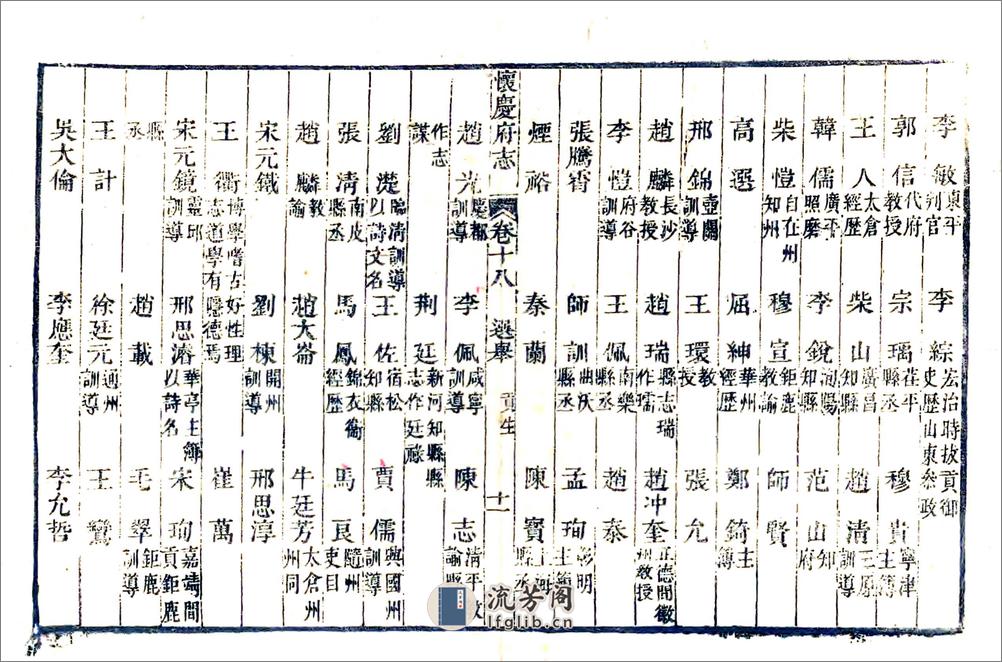 李敏東平判官 李綜宏治時拔貢御史歷山東參政
郭信代府教授 宗璃茌平縣丞 穆貴寧津主簿
王人太倉經歷 柴山廣昌知縣 趙清三原訓導
韓儒廣平照磨 李銳洵陽 范山知府
柴愷自在州知州 穆宣鉅鹿教諭 師賢
高選 屈紳華州經歷 鄭錡主簿
邢錦壺關訓導 王環教授 張允
趙麟長沙教授 趙瑞志瑞作㻇 趙冲奎正德間徽州教授
李愷府谷訓導 王佩南樂縣丞 趙泰
張騰霄 師訓曲沃縣丞 孟珣彭明主簿
煙裕 秦蘭 陳寶縣丞
懷慶府志 卷十八 選舉 貢生 十一
趙光慶都訓導 李佩咸寧訓導 陳志清平教諭
作志謀 荆廷新河知縣縣志作廷祿
劉濋臨清訓導以詩文名 王佐宿松知縣 賈儒興國州訓導
張清南皮縣丞 馬鳳錦衣衞經歷 馬良隨州吏目
趙麟教諭 趙大崙 牛廷芳太倉州州同
宋元鐵 劉棟開州訓導 邢思淳
王衢博學嗜古好性理志道學有隱德焉 崔萬
宋元鏡靈邱訓導 邢思濬華亭主簿以詩名 宋珣嘉靖間貢鉅鹿
縣丞 趙載 毛翠鉅鹿訓導
王計 徐廷元通州訓導 王鸞
吳大倫 李應奎 李允哲
流芳阁
lfglib.cn